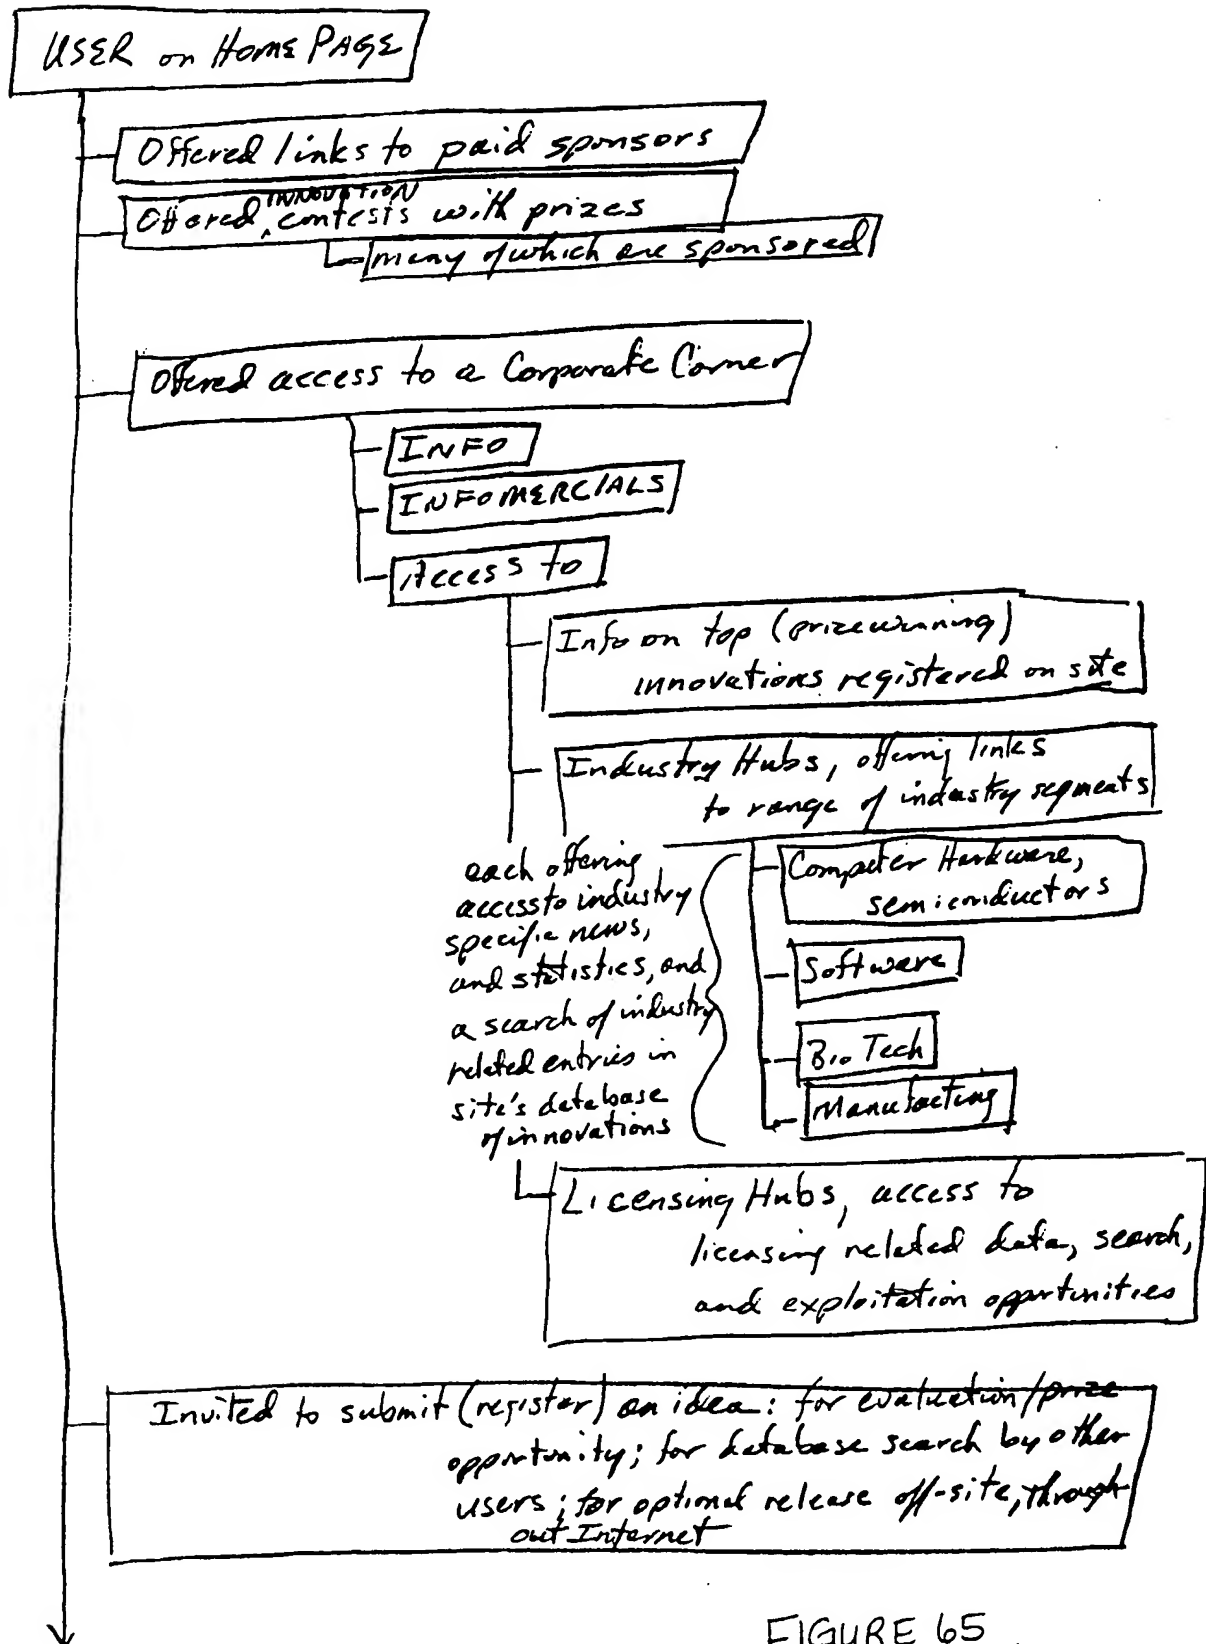 USER on HOME PAGE
Offered links to paid sponsors
INNOVATION
Offered contests with prizes
many of which are sponsored
Offered access to a Corporate Corner
INFO
INFOMERCIALS
Access to
Info on top (prizewinning)
innovations registered on site
Industry Hubs, offering links
to range of industry segments
each offering
access to industry
specific news,
and statistics, and
a search of industry
related entries in
site's database
of innovations
Computer Hardware,
semiconductors
Software
BioTech
Manufacting
Licensing Hubs, access to
licensing related data, search,
and exploitation opportunities
Invited to submit (register) an idea: for evaluation/prize
opportunity; for database search by other
users; for optional release off-site, through
out Internet
FIGURE 65